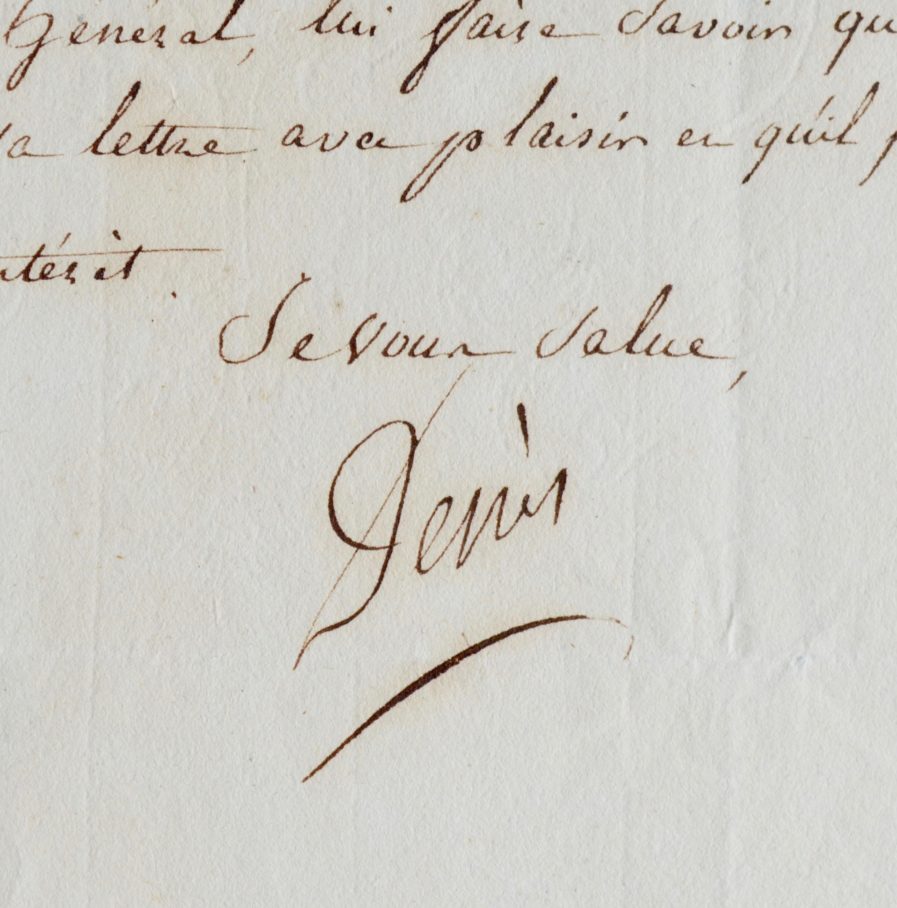 Général, lui faire savoir qu
sa lettre avec plaisir en qu'il p
ntérèt.
Je vous salue,
Denis